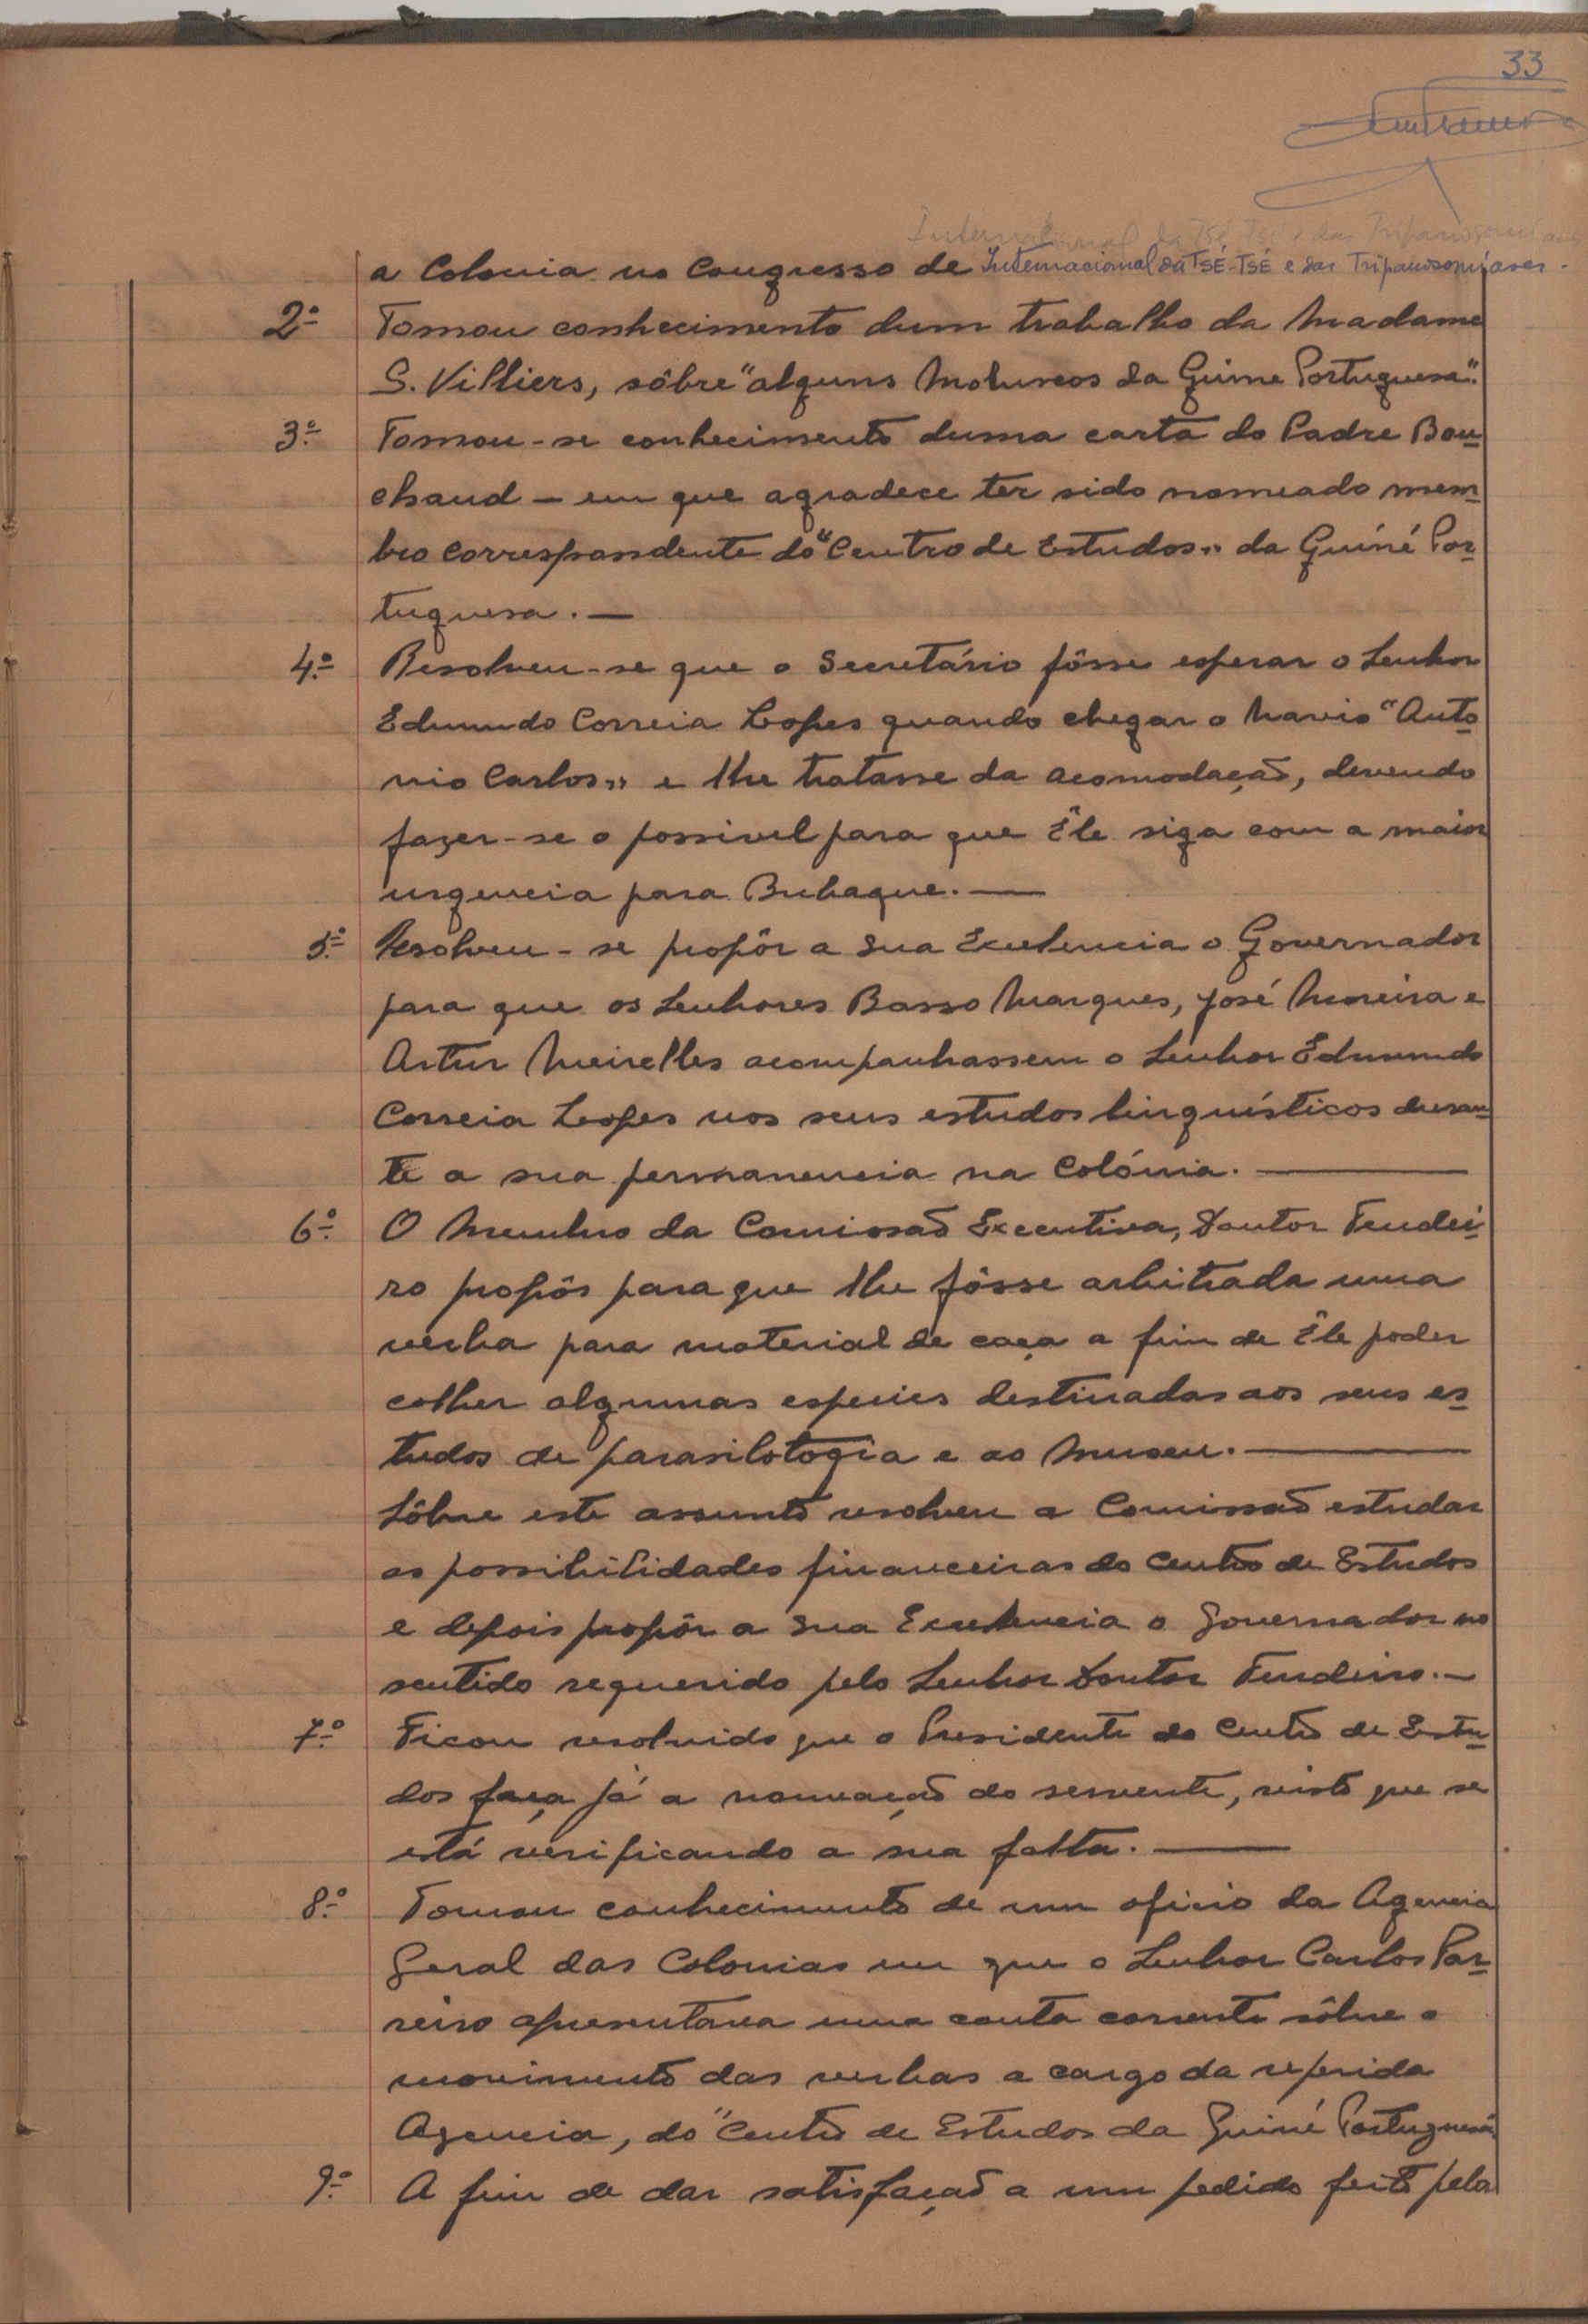 33
Internacional da Tsé-Tsé e das Tripanosomíases
a Colonia no Congresso de Internacional da TSÉ-TSÉ e das Tripanosomíases.
2º Tomou conhecimento dum trabalho da Madame
S. Villiers, sôbre "alguns Moluscos da Guine Portuguesa".
3º Tomou-se conhecimento duma carta do Padre Bou-
chaud - em que agradece ter sido nomeado mem-
bro correspondente do "Centro de Estudos" da Guiné Por-
tuguesa. —
4º Resolveu-se que o Secretário fôsse esperar o Senhor
Edmundo Correia Lopes quando chegar o navio "Anto-
nio Carlos" e lhe tratasse da acomodação, devendo
fazer-se o possivel para que êle siga com a maior
urgencia para Bubaque. —
5º Resolveu-se propôr a Sua Excelencia o Governador
para que os Senhores Basso Marques, José Moreira e
Artur Meirelles acompanhassem o Senhor Edmundo
Correia Lopes nos seus estudos linguísticos duran-
te a sua permanencia na Colónia. —
6º O Membro da Comissão Executiva, Doutor Tendei-
ro propôs para que lhe fôsse arbitrada uma
verba para material de caça a fim de êle poder
colher algumas especies destinadas aos seus es-
tudos de parasilotogia e ao Museu. —
Sôbre este assunto resolveu a Comissão estudar
as possibilidades financeiras do Centro de Estudos
e depois propôr a Sua Excelencia o Governador no
sentido requerido pelo Senhor Doutor Tendeiro. —
7º Ficou resolvido que o Presidente do Centro de Estu-
dos faça já a nomeação do servente, visto que se
está verificando a sua falta. —
8º Tomou conhecimento de um oficio da Agencia
Geral das Colonias em que o Senhor Carlos Par-
reiro apresentava uma conta corrente sôbre o
movimento das verbas a cargo da referida
Agencia, do "Centro de Estudos da Guiné Portuguesa"
9º A fim de dar satisfação a um pedido feito pela